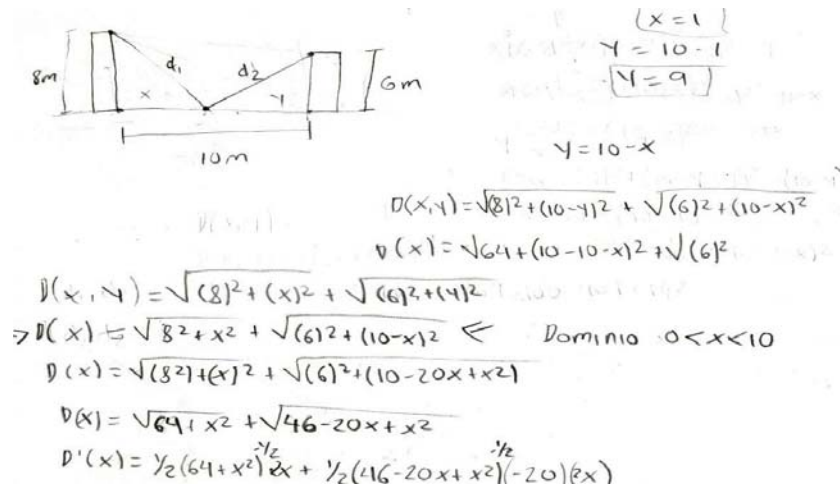 8m
d₁
d₂
6m
x
y
10m
x = 1
y = 10 - 1
y = 9
y = 10-x
D(x,y) = √(8)²+(10-y)² + √(6)²+(10-x)²
D(x) = √64+(10-10-x)² + √(6)²
D(x,y) = √(8)²+(x)² + √(6)²+(y)²
→ D(x) = √8²+x² + √(6)²+(10-x)² ← Dominio 0<x<10
D(x) = √(8²)+(x)² + √(6)²+(10-20x+x²)
D(x) = √64+x² + √46-20x+x²
D'(x) = 1/2(64+x²)^-1/2 2x + 1/2(46-20x+x²)^-1/2 (-20)(2x)